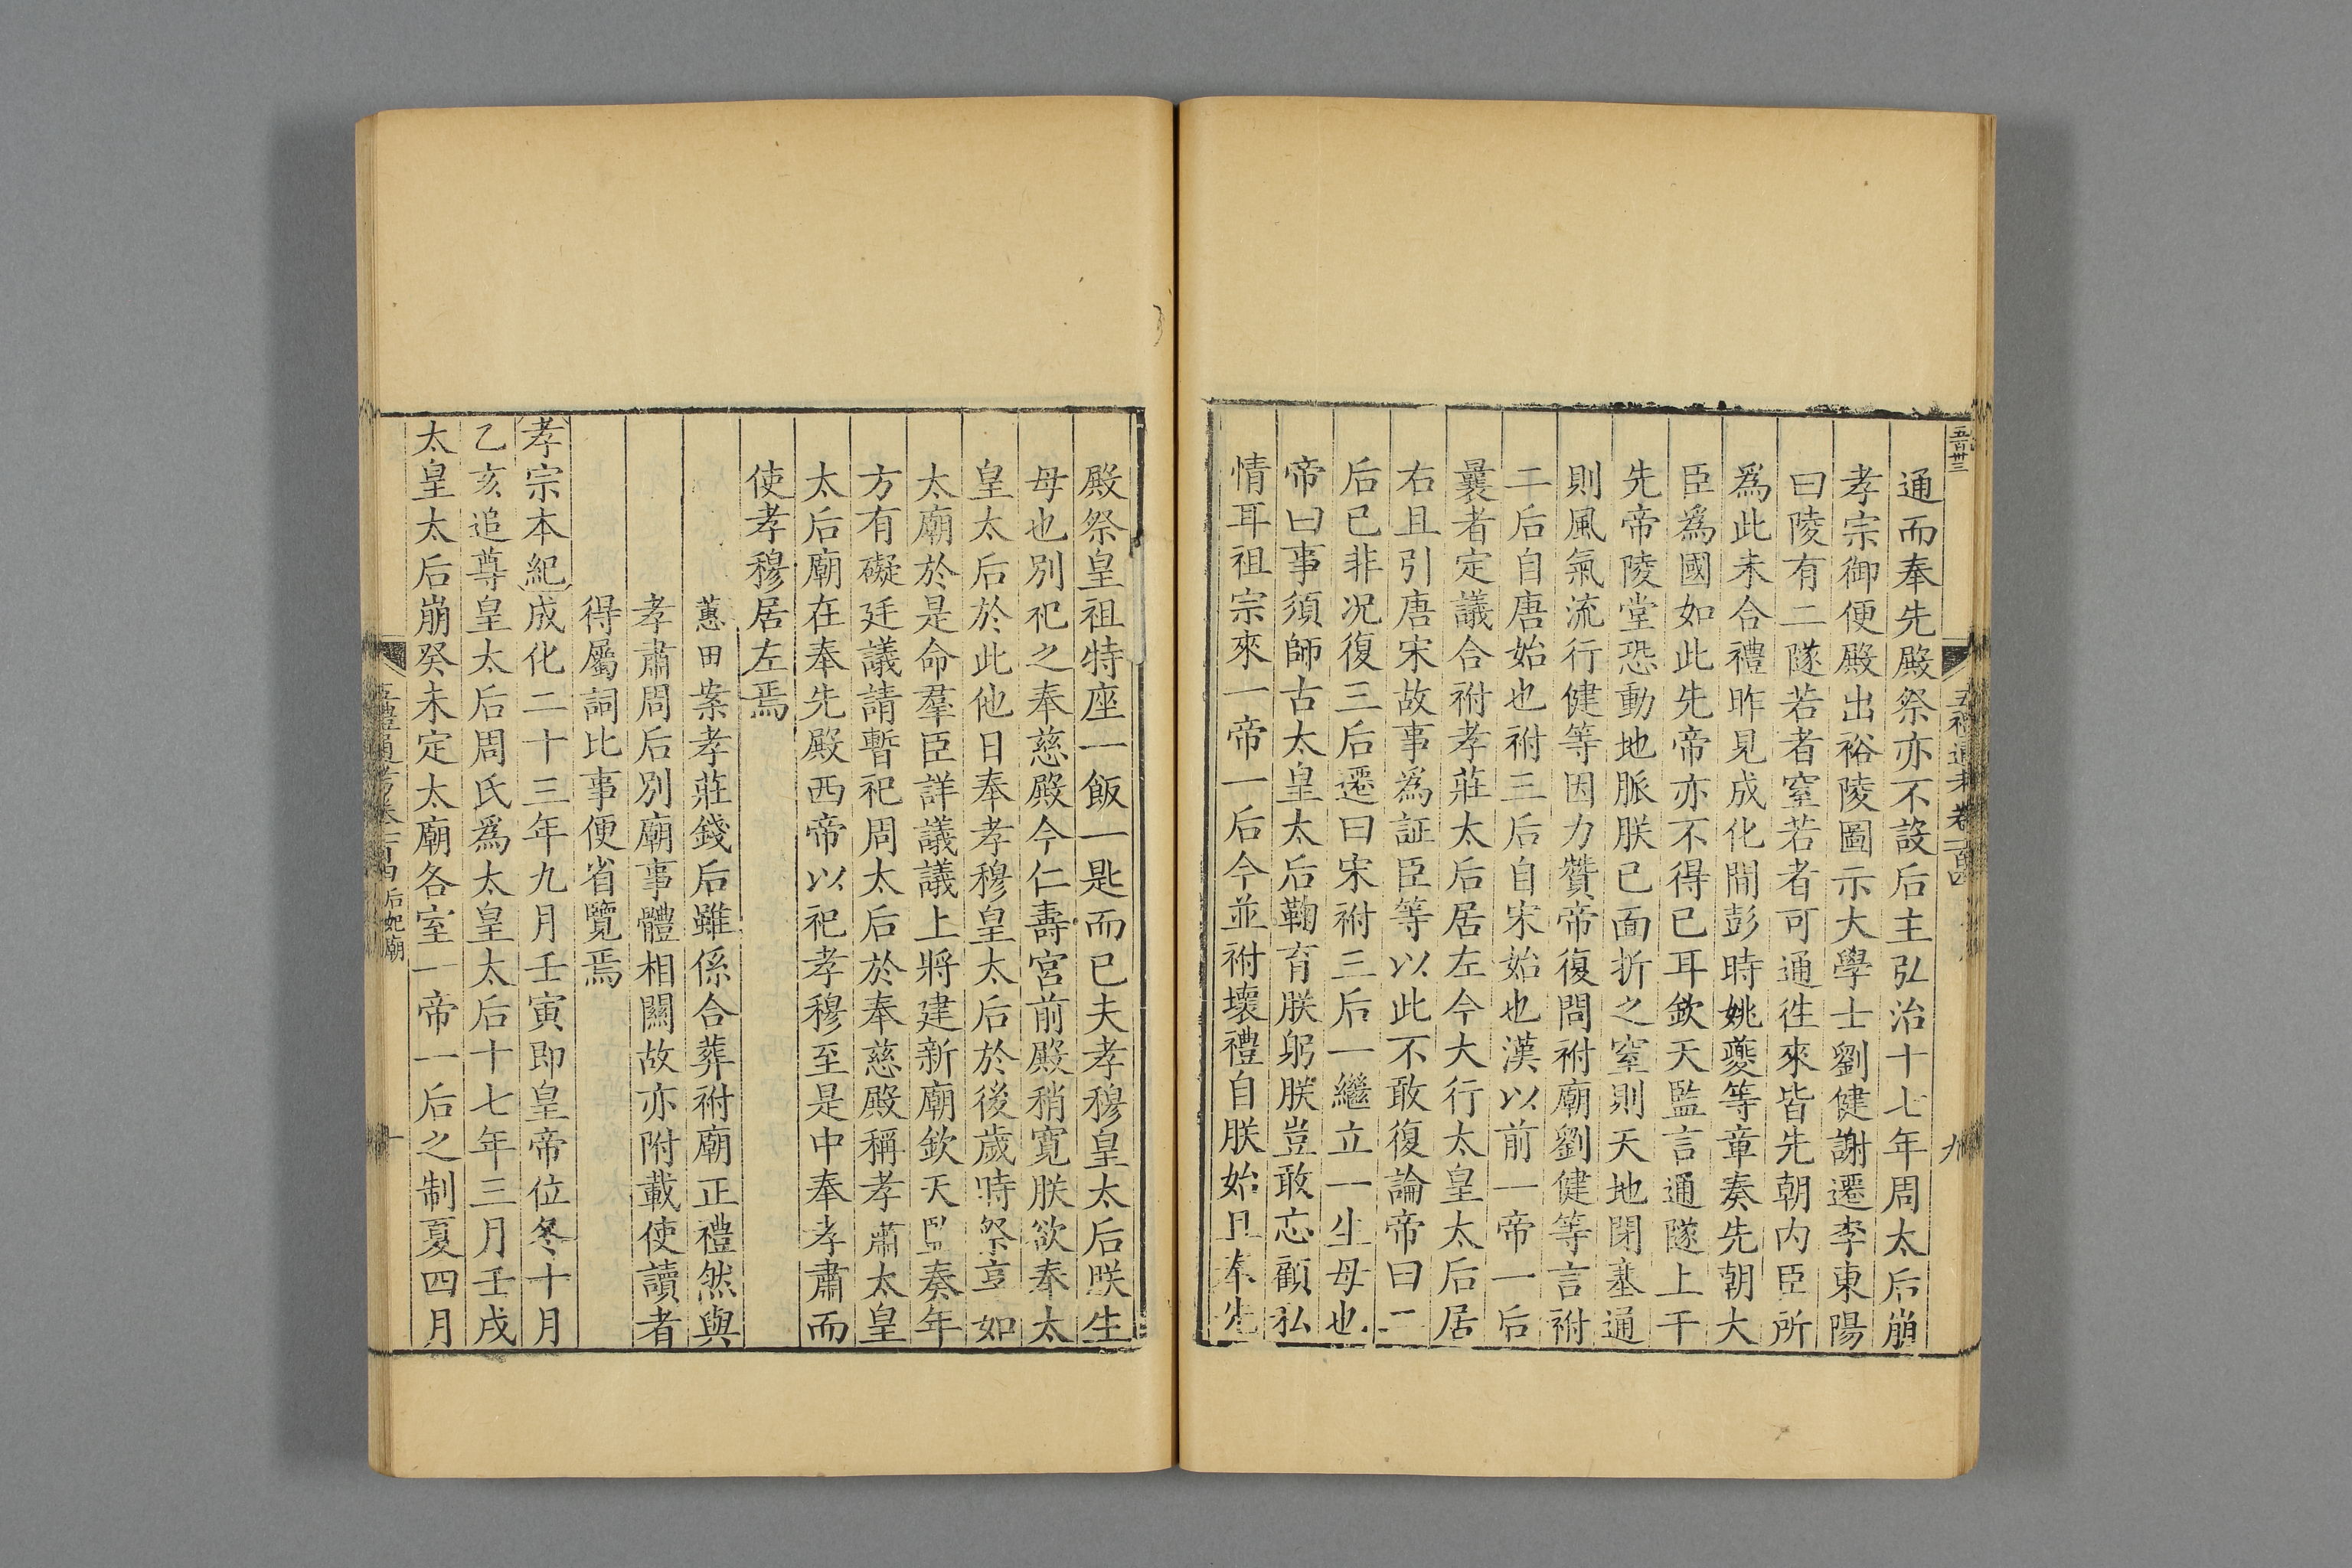 五百卅三
五禮通考卷一百四
九
通而奉先殿祭亦不設后主弘治十七年周太后崩
孝宗御便殿出裕陵圖示大學士劉健謝遷李東陽
曰陵有二隧若者窒若者可通往來皆先朝内臣所
爲此未合禮昨見成化間彭時姚夔等章奏先朝大
臣爲國如此先帝亦不得已耳欽天監言通隧上干
先帝陵堂恐動地脈朕已面折之窒則天地閉塞通
則風氣流行健等因力贊帝復問祔廟劉健等言祔
二后自唐始也祔三后自宋始也漢以前一帝一后
曩者定議合祔孝莊太后居左今大行太皇太后居
右且引唐宋故事爲証臣等以此不敢復論帝曰二
后已非况復三后遷曰宋祔三后一繼立一生母也
帝曰事須師古太皇太后鞠育朕躬朕豈敢忘顧私
情耳祖宗來一帝一后今並祔壞禮自朕始且奉先
殿祭皇祖特座一飯一匙而已夫孝穆皇太后朕生
母也別祀之奉慈殿今仁壽宮前殿稍寬朕欲奉太
皇太后於此他日奉孝穆皇太后於後歲時祭享如
太廟於是命羣臣詳議議上將建新廟欽天監奏年
方有礙廷議請暫祀周太后於奉慈殿稱孝肅太皇
太后廟在奉先殿西帝以祀孝穆至是中奉孝肅而
使孝穆居左焉
蕙田案孝莊錢后雖係合葬祔廟正禮然與
孝肅周后別廟事體相關故亦附載使讀者
得屬詞比事便省覽焉
孝宗本紀成化二十三年九月壬寅即皇帝位冬十月
乙亥追尊皇太后周氏爲太皇太后十七年三月壬戌
太皇太后崩癸未定太廟各室一帝一后之制夏四月
五禮通考卷一百四 后妃廟
十